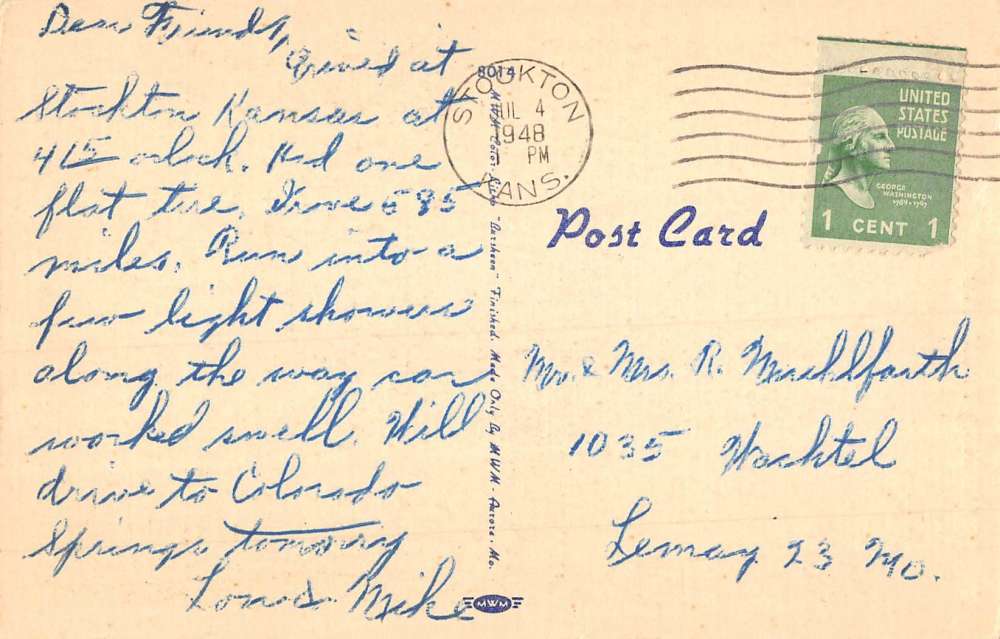 Dear Friends,
Arived at
Stockton Kansas at
4 15 oclock. Had one
flat tire. Drove 595
miles. Run into a
few light showers
along the way car
worked swell. Will
drive to Colorado
Springs tomorry
Mike
8014
MWM Color-Litho "Darsheen" Finished. Made Only By MWM - Aurora, Mo.
MWM
STOCKTON
JUL 4
1948
PM
KANS.
UNITED
STATES
POSTAGE
GEORGE
WASHINGTON
1789-1797
1 CENT 1
Post Card
Mr. & Mrs. R. Muehlfarth
1035 Wachtel
Lemay 23 Mo.